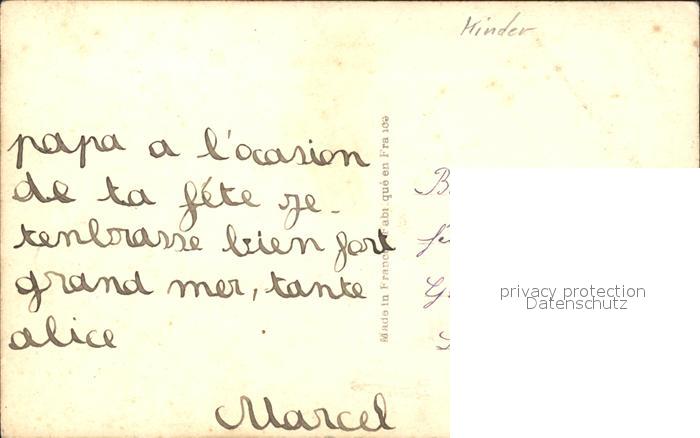 Kinder
papa a l'ocasion
de ta féte je-
tenbrasse bien fort
grand mer, tante
alice
Marcel
Made in France Fabriqué en France
privacy protection
Datenschutz